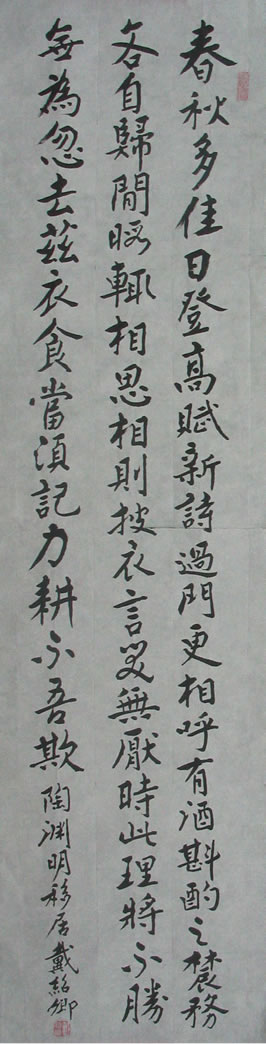 春秋多佳日登高賦新詩過門更相呼有酒斟酌之農務
各自歸閒暇輒相思相則披衣言笑無厭時此理將不勝
無為忽去茲衣食當須記力耕不吾欺陶淵明移居戴紹卿